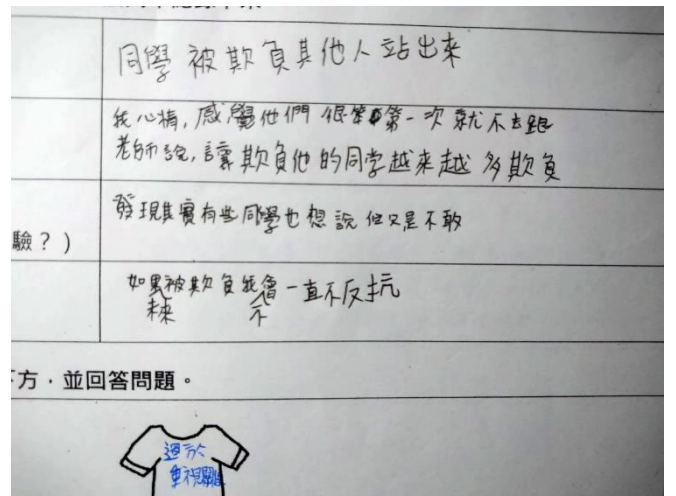 同學被欺負其他人站出來
我心情,感覺他們很笨第一次就不去跟
老師說,讓欺負他的同学越来越多欺負
發現其實有些同學也想說但又是不敢
驗?)
如果被欺負我會一直不反抗
未來 不
下方,並回答問題。
過於
重視